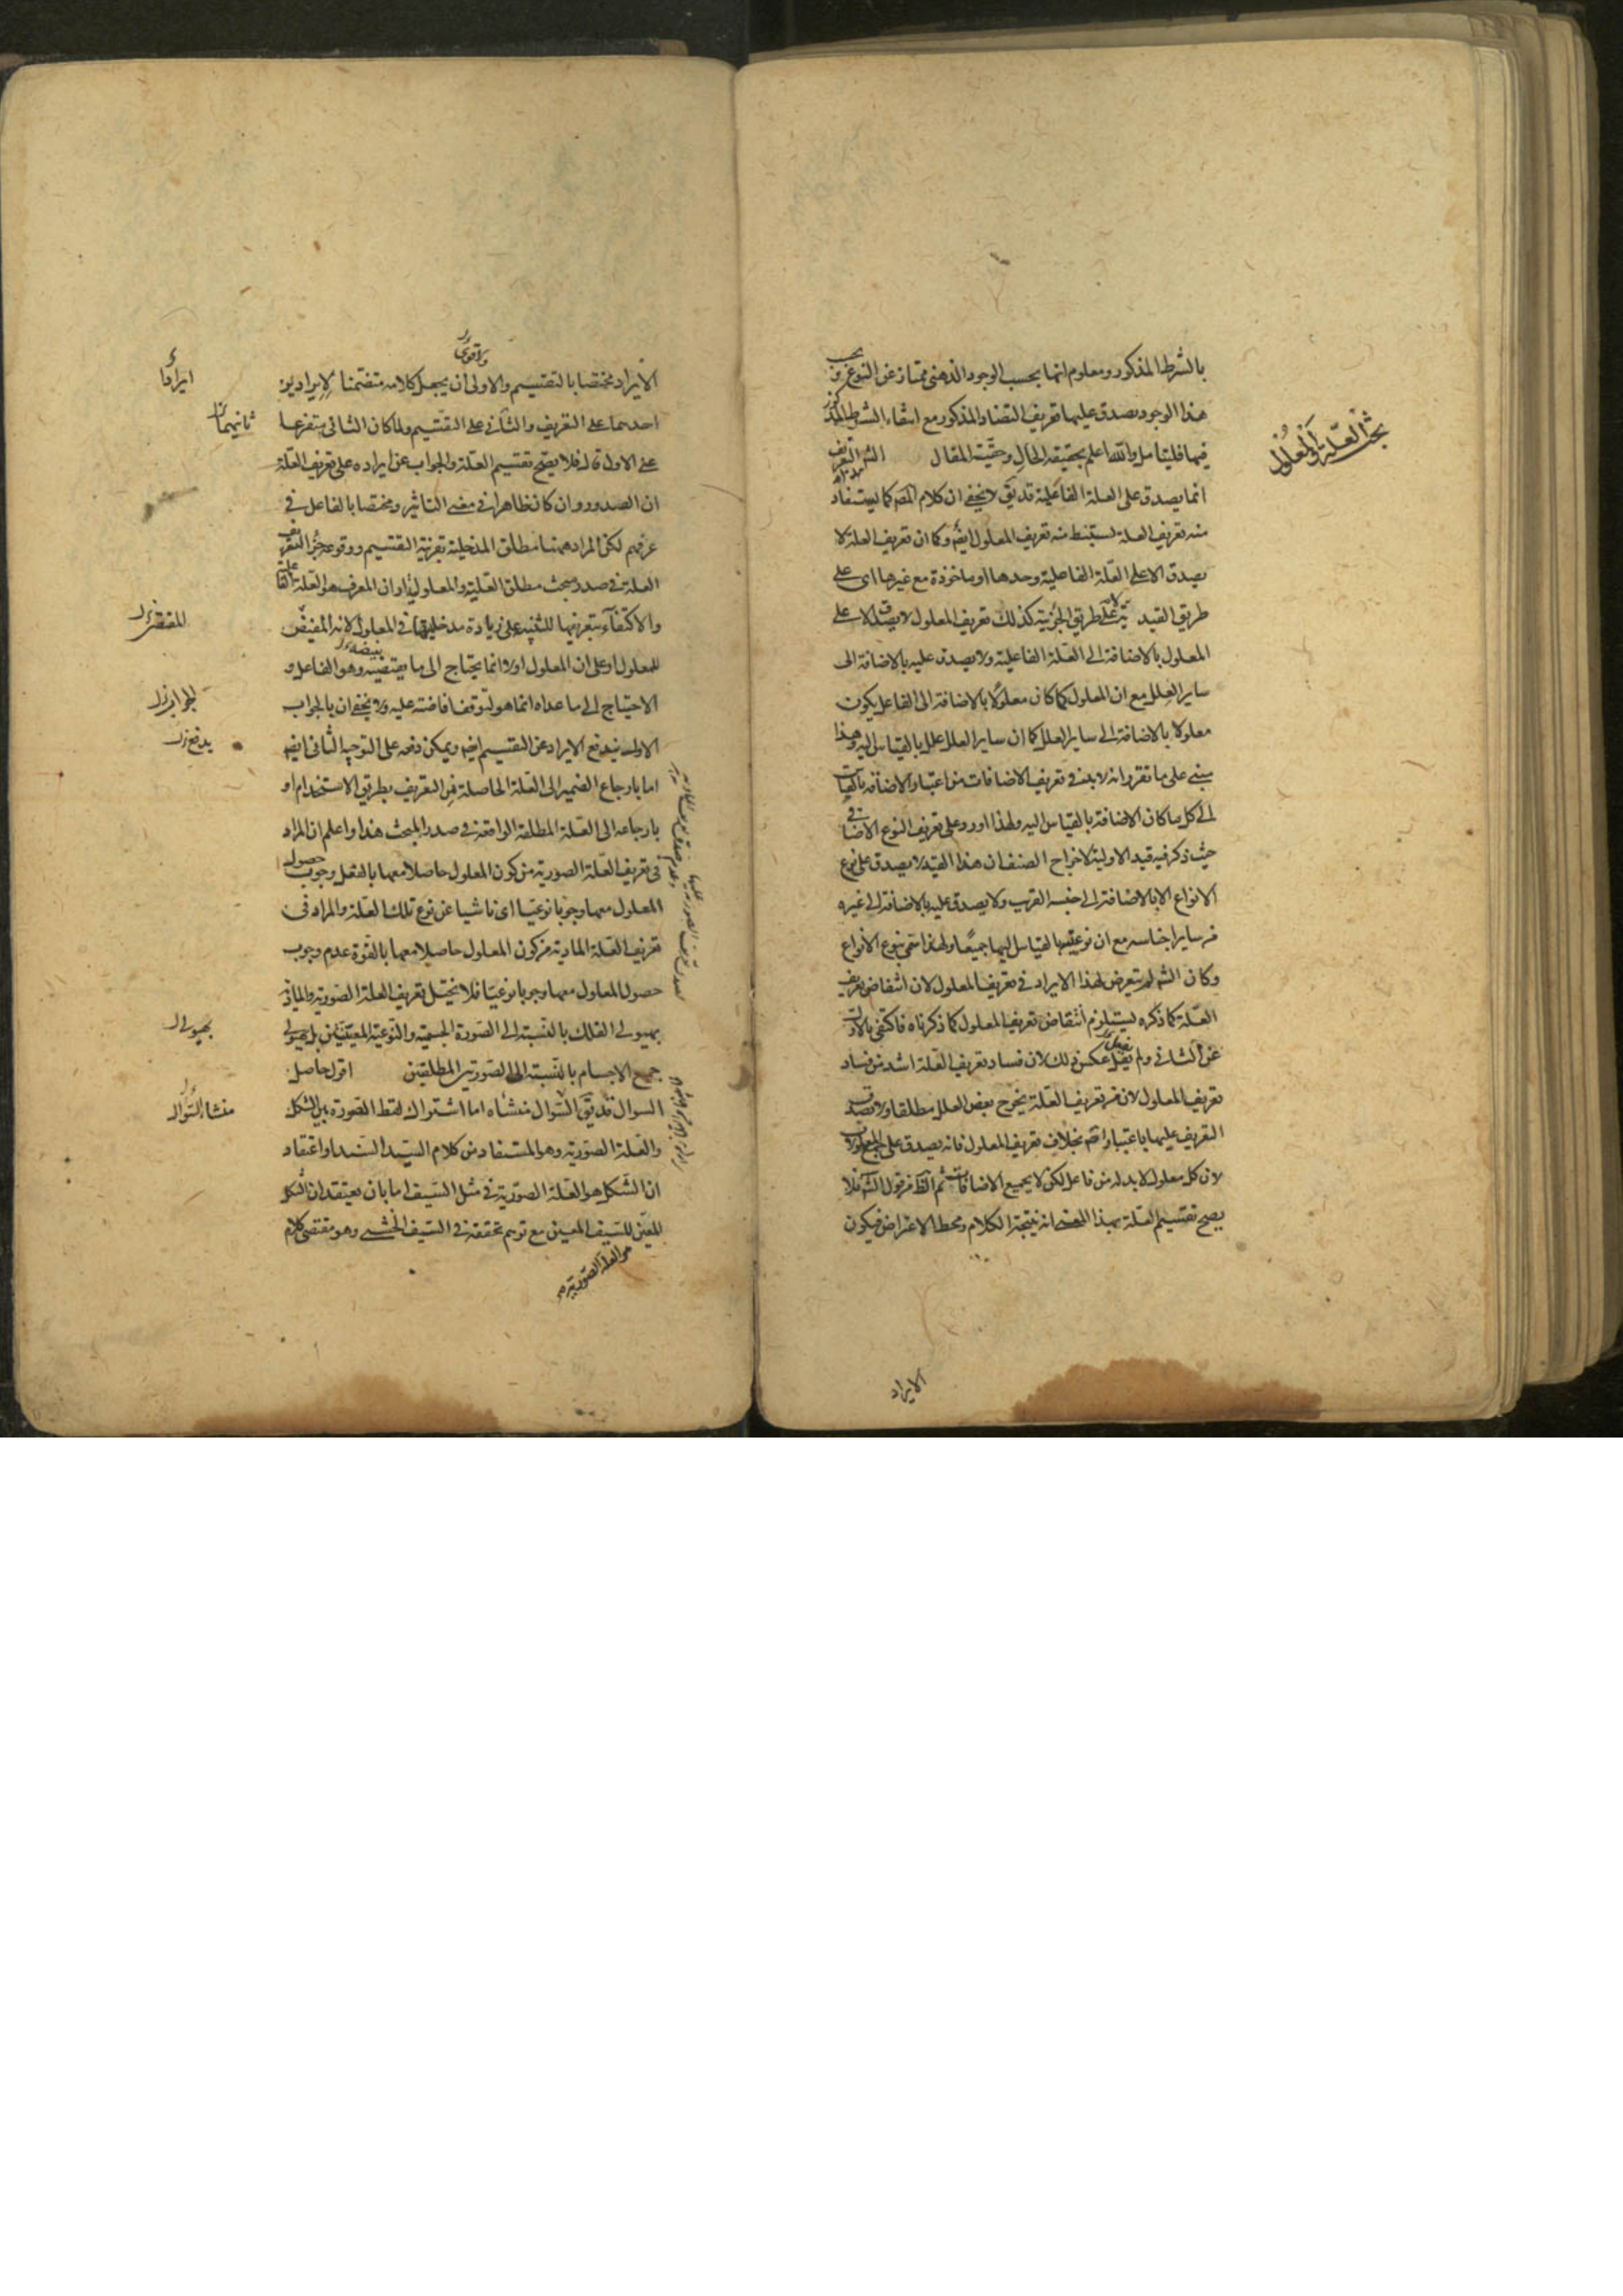 بالشرط المذكور ومعلوم انها بحسب الوجود الذهنى ممتاز عن النوع وبحسب
هذا الوجود يصدق عليهما تعريف التضاد المذكور مع انتفاء الشرط المذكور
فيهما فليتامل والله اعلم بحقيقه الحال وحقيّة المقال الشر التعريف
انما يصدق على العلة الفاعلية قد يق لا يخفى ان كلام المص كما يستفاد
منه تعريف العلة يستنبط منه تعريف المعلول ايضا وكما ان تعريف العلة لا
يصدق الا على العلة الفاعلية وحدها او ماخوذة مع غيرها اى على
طريق القيدية لا على طريق الجزئية كذلك تعريف المعلول لا يصدق الا على
المعلول بالاضافة الى العلة الفاعلية ولا يصدق عليه بالاضافة الى
ساير العلل مع ان المعلول كما كان معلولا بالاضافة الى الفاعل يكون
معلولا بالاضافة الى ساير العلل كما ان ساير العلل علل بالقياس اليه وهذا
يبنى على ما تقرر انه لا بد فى تعريف الاضافات من اعتبار الاضافة بالقياس
الى كل ما كان الاضافة بالقياس اليه ولهذا اورد على تعريف النوع الاضافى
حيث ذكر فيه قيد الاولية لاخراج الصنف ان هذا القيد لا يصدق على نوع
الانواع الا بالاضافة الى جنسه القريب ولا يصدق عليه بالاضافة الى غيره
من ساير اجناسه مع ان نوعيته بالقياس اليها جميعًا ولهذا سمّى بنوع الانواع
وكان الش لم يتعرض لهذا الايراد فى تعريف المعلول لان انتقاض تعريف
العلة كما ذكره يستلزم انتقاض تعريف المعلول كما ذكرناه فاكتفى بالاول
عن الثانى ولم يفعل عكس ذلك لان فساد تعريف العلة اشد من فساد
تعريف المعلول لان من تعريف العلة يخرج بعض العلل مطلقا ولا يصدق
التعريف عليها باعتبار اصلا بخلاف تعريف المعلول فانه يصدق على جميع المعلولات
لان كل معلول لا بد له من فاعل لكن لا بجميع الاضافات ثم الظ من قول الش فلا
يصح تقسيم العلة بهذا المعنى انه نتيجة الكلام ومحط الاعتراض فيكون
بحث العلة والمعلول
الايراد
الايراد مختصا بالتقسيم والاولى ان يجعل كلامه متضمنا لايرادين
احدهما على التعريف والثانى على التقسيم ولما كان الثانى متفرعا
على الاول قال فلا يصح تقسيم العلة والجواب عن ايراده على تعريف العلة
ان الصدور وان كان ظاهرا فى معنى التاثير ومختصا بالفاعل فى
عرفهم لكن المراد ههنا مطلق المدخلية بقرينة التقسيم ووقوعه جزء التعريف
العلة فى صدر مبحث مطلق العلية والمعلولية او ان المعرف هو العلة الفاعلية
والاكتفاء بتعريفها للتنبيه على زيادة مدخليتها فى المعلول لانه المفيض
للمعلول او على ان المعلول اولا انما يحتاج الى ما يقتضيه وهو الفاعل و
الاحتياج الى ما عداه انما هو لتوقف افاضته عليه ولا يخفى ان بالجواب
الاول يندفع الايراد عن التقسيم ايضا ويمكن دفعه على التوجيه الثانى ايضا
اما بارجاع الضمير الى العلة الحاصلة من التعريف بطريق الاستخدام او
بارجاعه الى العلة المطلقة الواقعة فى صدر المبحث هذا واعلم ان المراد
فى تعريف العلة الصورية من كون المعلول حاصلا معها بالفعل وجوب حصول
المعلول معها وجوبا نوعيا اى ناشيا عن نوع تلك العلة والمراد فى
تعريف العلة المادية من كون المعلول حاصلا معها بالقوة عدم وجوب
حصول المعلول معها وجوبا نوعيا فلا يختل تعريف العلة الصورية والمادية
بهيولى الفلك بالنسبة الى الصورة الجسمية والنوعية المعينتين بل بهيولى
جميع الاجسام بالنسبة الى الصورتين المطلقتين اقول حاصل
السوال قد يق السّوال منشاه اما اشتراك لفظ الصورة بين الشكل
والعلة الصورية وهو المستفاد من كلام السيد السند او اعتقاد
ان الشكل هو العلة الصورية فى مثل السيف اما بان يعتقد ان الشكل
المعين للسيف المعين مع توهم تحققه فى السيف الخشبى وهو مقتضى كلام
هو العلة الصورية
ايرادا
ثانيهما
بهيولى
منشا السّوال